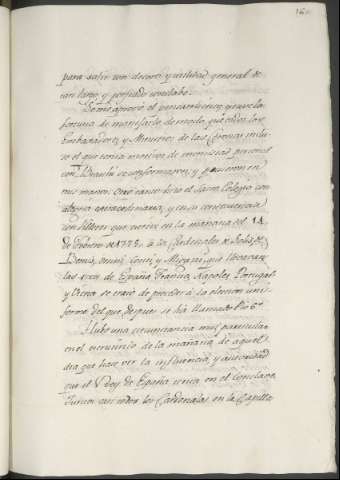 para salir con decoro y utilidad general de
tan largo, y porfiado conclabe.
Bernis aprovó el pensamiento, y tuve la
fortuna de manejarlo de modo, que todos los
Embaxadores, y Ministros de las Coronas inclu-
so el que tenia motivos de enemistad personal
con Braschi se conformaron, y pusieron en
mis manos. Oyó tambien esto el Sacro Colegio con
alegria extraordinaria, y en su consequencia
con villetes que escrivi en la mañana del 14
de Febrero de 1775. a los Cardenales de Solis, de
Bernis, Orsini, Conti, y Migazzi, que llevaban
las voces de España, Francia, Napoles, Portugal,
y Viena se trató de proceder á la eleccion uni-
forme del que despues se há llamado Pio 6.º
Hubo una circunstancia muy particular
en el escrutinio de la mañana de aquel
dia que hace ver la influencia, y autoridad
que el Rey de España tenia en el Conclave.
Juntos casi todos los Cardenales en la Capilla